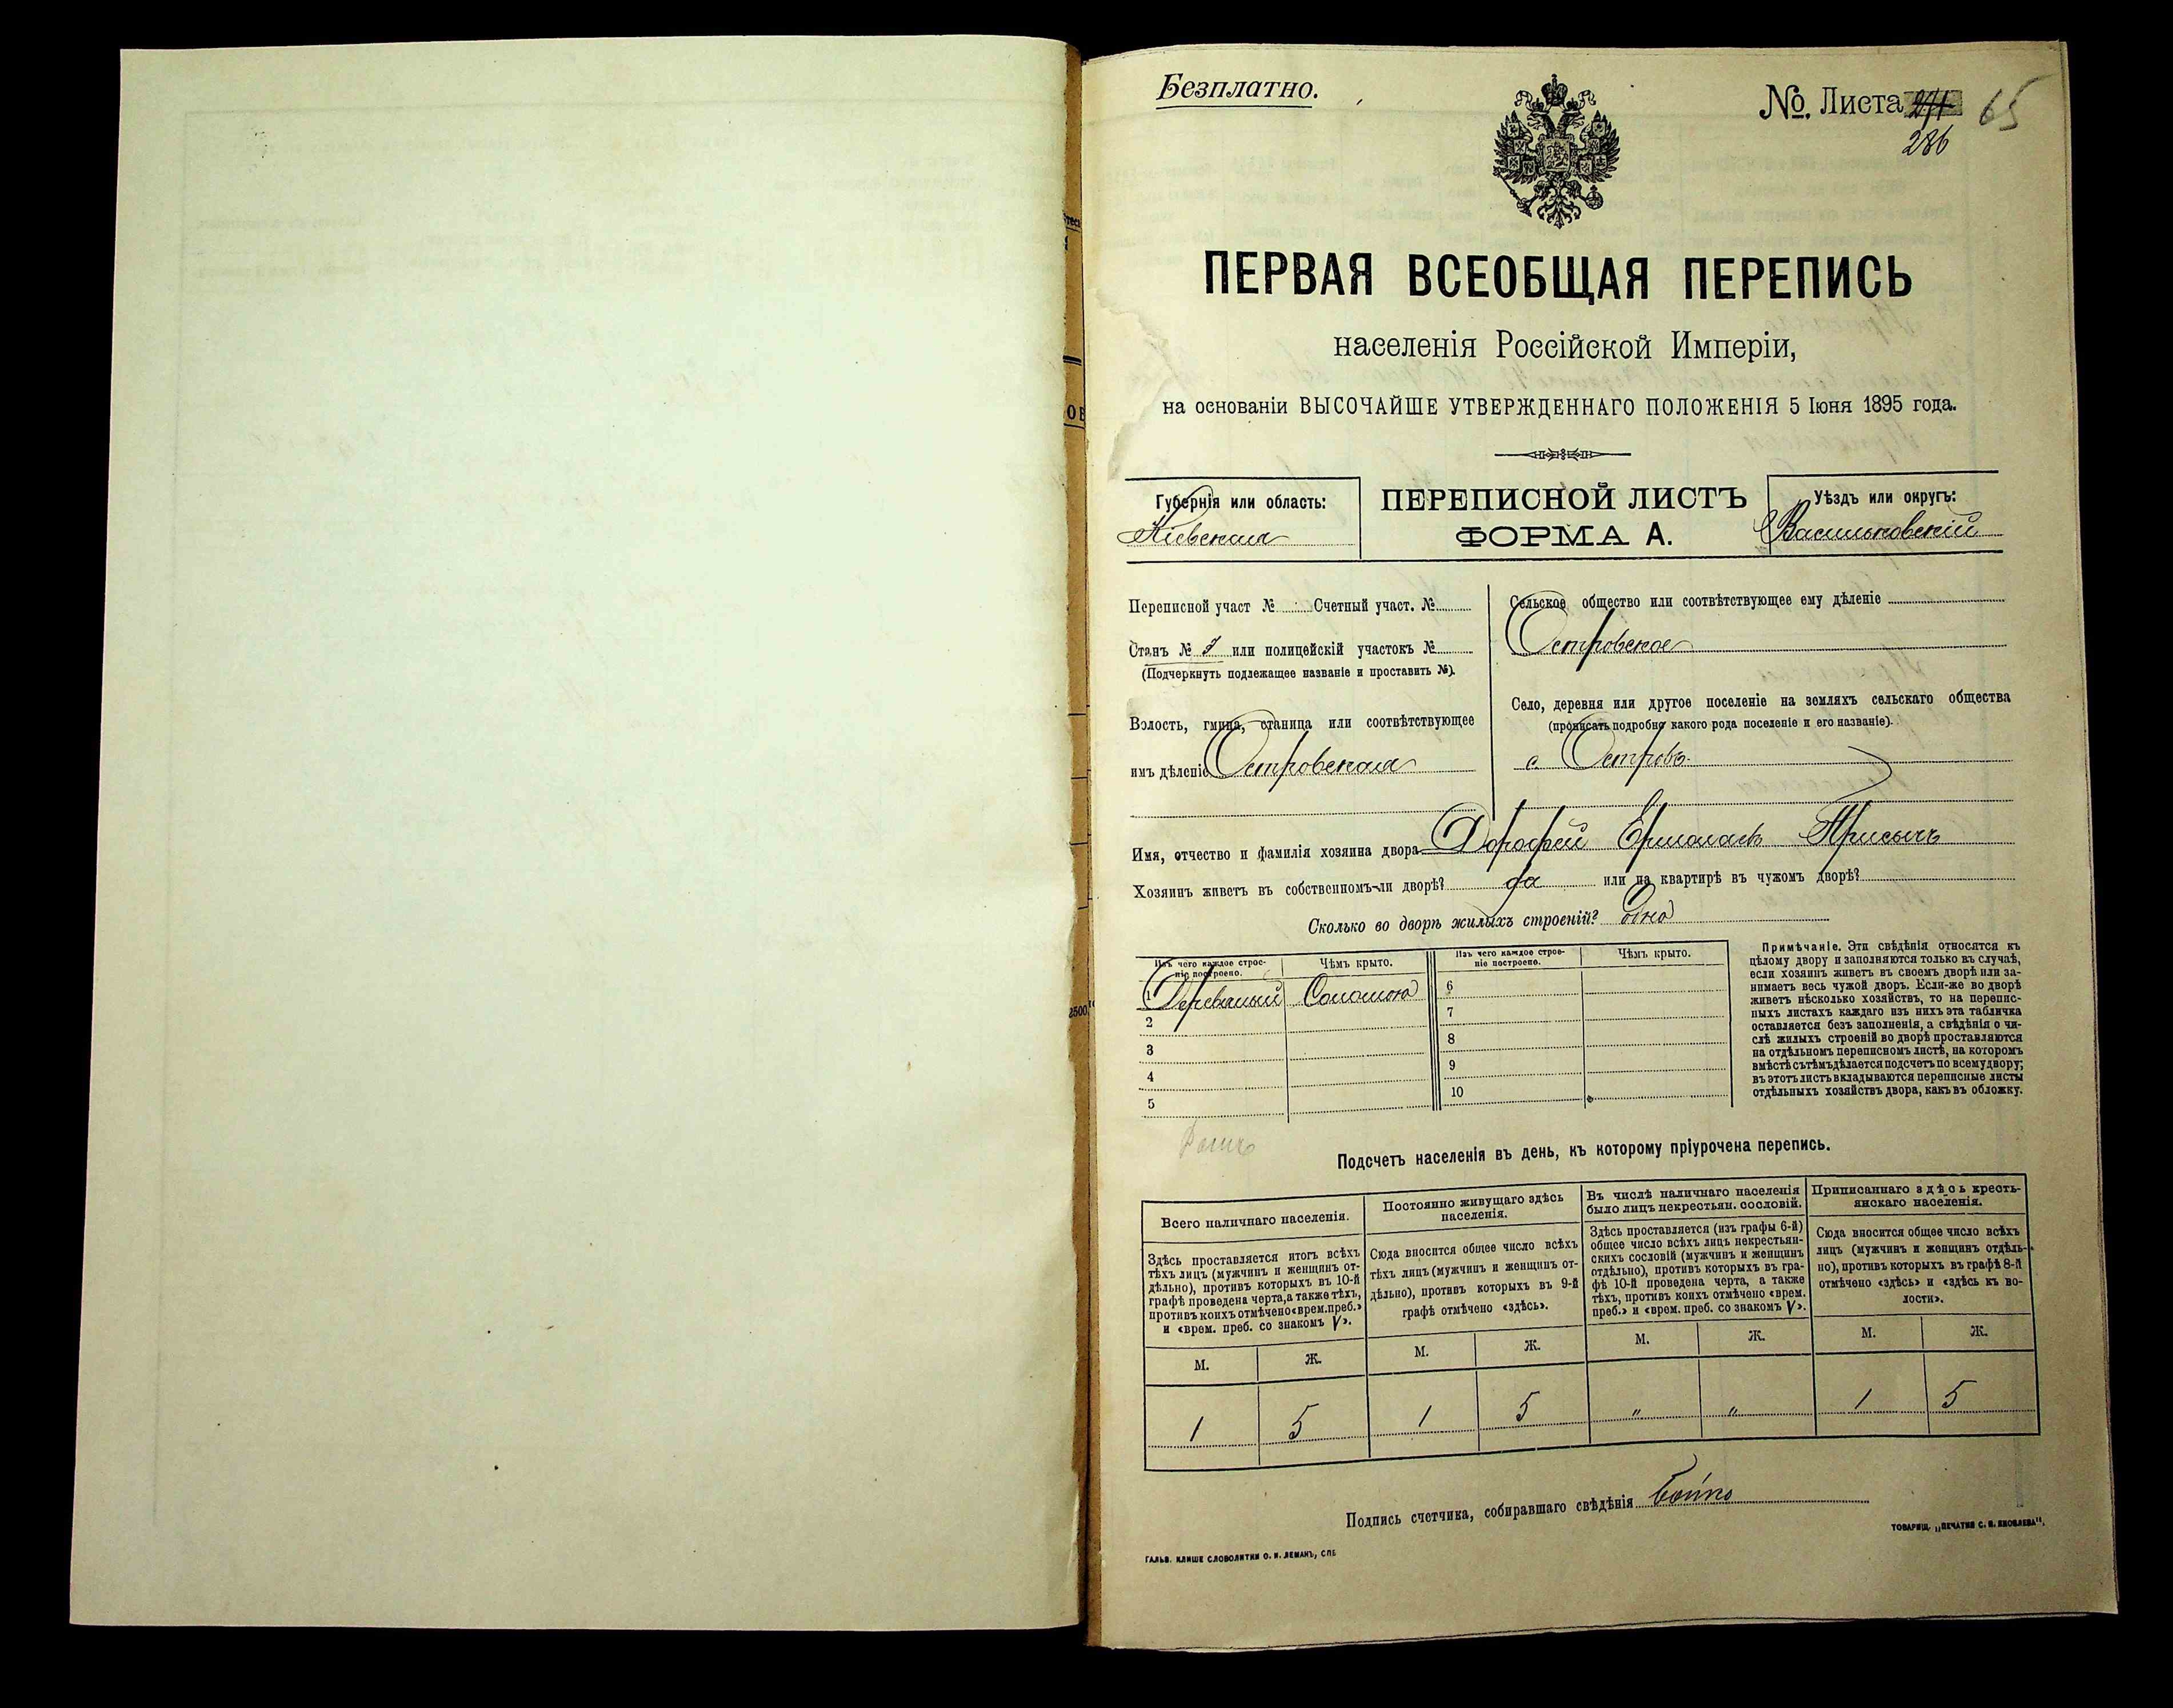 Безплатно.
№ Листа 271 65
286
ПЕРВАЯ ВСЕОБЩАЯ ПЕРЕПИСЬ
населенія Россійской Имперіи,
на основаніи ВЫСОЧАЙШЕ УТВЕРЖДЕННАГО ПОЛОЖЕНІЯ 5 Іюня 1895 года.
Губернія или область:
Кіевская
ПЕРЕПИСНОЙ ЛИСТЪ
ФОРМА А.
Уѣздъ или округъ:
Васильковскій
Переписной участ № Счетный участ. №
Станъ № или полицейскій участокъ №
(Подчеркнуть подлежащее названіе и проставить №).
Волость, гмина, станица или соотвѣтствующее
имъ дѣленіе Островская
Сельское общество или соотвѣтствующее ему дѣленіе
Островское
Село, деревня или другое поселеніе на земляхъ сельскаго общества
(прописать подробно какого рода поселеніе и его названіе).
с. Островъ
Имя, отчество и фамилія хозяина двора Дорофей Ермолаевъ Присычъ
Хозяинъ живетъ въ собственномъ-ли дворѣ? да или на квартирѣ въ чужомъ дворѣ?
Сколько во дворѣ жилыхъ строеній? одно
Изъ чего каждое строе-
ніе построено.
Чѣмъ крыто.
Изъ чего каждое строе-
ніе построено.
Чѣмъ крыто.
1 Деревяный Соломою 6
2 7
3 8
4 9
5 10
Примѣчаніе. Эти свѣдѣнія относятся къ
цѣлому двору и заполняются только въ случаѣ,
если хозяинъ живетъ въ своемъ дворѣ или за-
нимаетъ весь чужой дворъ. Если-же во дворѣ
живетъ нѣсколько хозяйствъ, то на перепис-
ныхъ листахъ каждаго изъ нихъ эта табличка
оставляется безъ заполненія, а свѣдѣнія о чи-
слѣ жилыхъ строеній во дворѣ проставляются
на отдѣльномъ переписномъ листѣ, на которомъ
вмѣстѣ съ тѣмъ дѣлается подсчетъ по всему двору;
въ этотъ листъ вкладываются переписные листы
отдѣльныхъ хозяйствъ двора, какъ въ обложку.
Подсчетъ населенія въ день, къ которому пріурочена перепись.
Всего наличнаго населенія.
Здѣсь проставляется итогъ всѣхъ
тѣхъ лицъ (мужчинъ и женщинъ от-
дѣльно), противъ которыхъ въ 10-й
графѣ проведена черта, а также тѣхъ,
противъ коихъ отмѣчено «врем. преб.»
и «врем. преб. со знакомъ V».
Постоянно живущаго здѣсь
населенія.
Сюда вносится общее число всѣхъ
тѣхъ лицъ (мужчинъ и женщинъ от-
дѣльно), противъ которыхъ въ 9-й
графѣ отмѣчено «здѣсь».
Въ числѣ наличнаго населенія
было лицъ некрестьян. сословій.
Здѣсь проставляется (изъ графы 6-й)
общее число всѣхъ лицъ некрестьян-
скихъ сословій (мужчинъ и женщинъ
отдѣльно), противъ которыхъ въ гра-
фѣ 10-й проведена черта, а также
тѣхъ, противъ коихъ отмѣчено «врем.
преб.» и «врем. преб. со знакомъ V».
Приписаннаго здѣсь кресть-
янскаго населенія.
Сюда вносится общее число всѣхъ
лицъ (мужчинъ и женщинъ отдѣль-
но), противъ которыхъ въ графѣ 8-й
отмѣчено «здѣсь» и «здѣсь къ во-
лости».
М. Ж. М. Ж. М. Ж. М. Ж.
1 5 1 5 " " 1 5
Подпись счетчика, собиравшаго свѣдѣнія Бойко
ГАЛЬВ. КЛИШЕ СЛОВОЛИТНИ О. И. ЛЕМАНЪ, СПБ
ТОВАРИЩ. „ПЕЧАТНЯ С. П. ЯКОВЛЕВА".